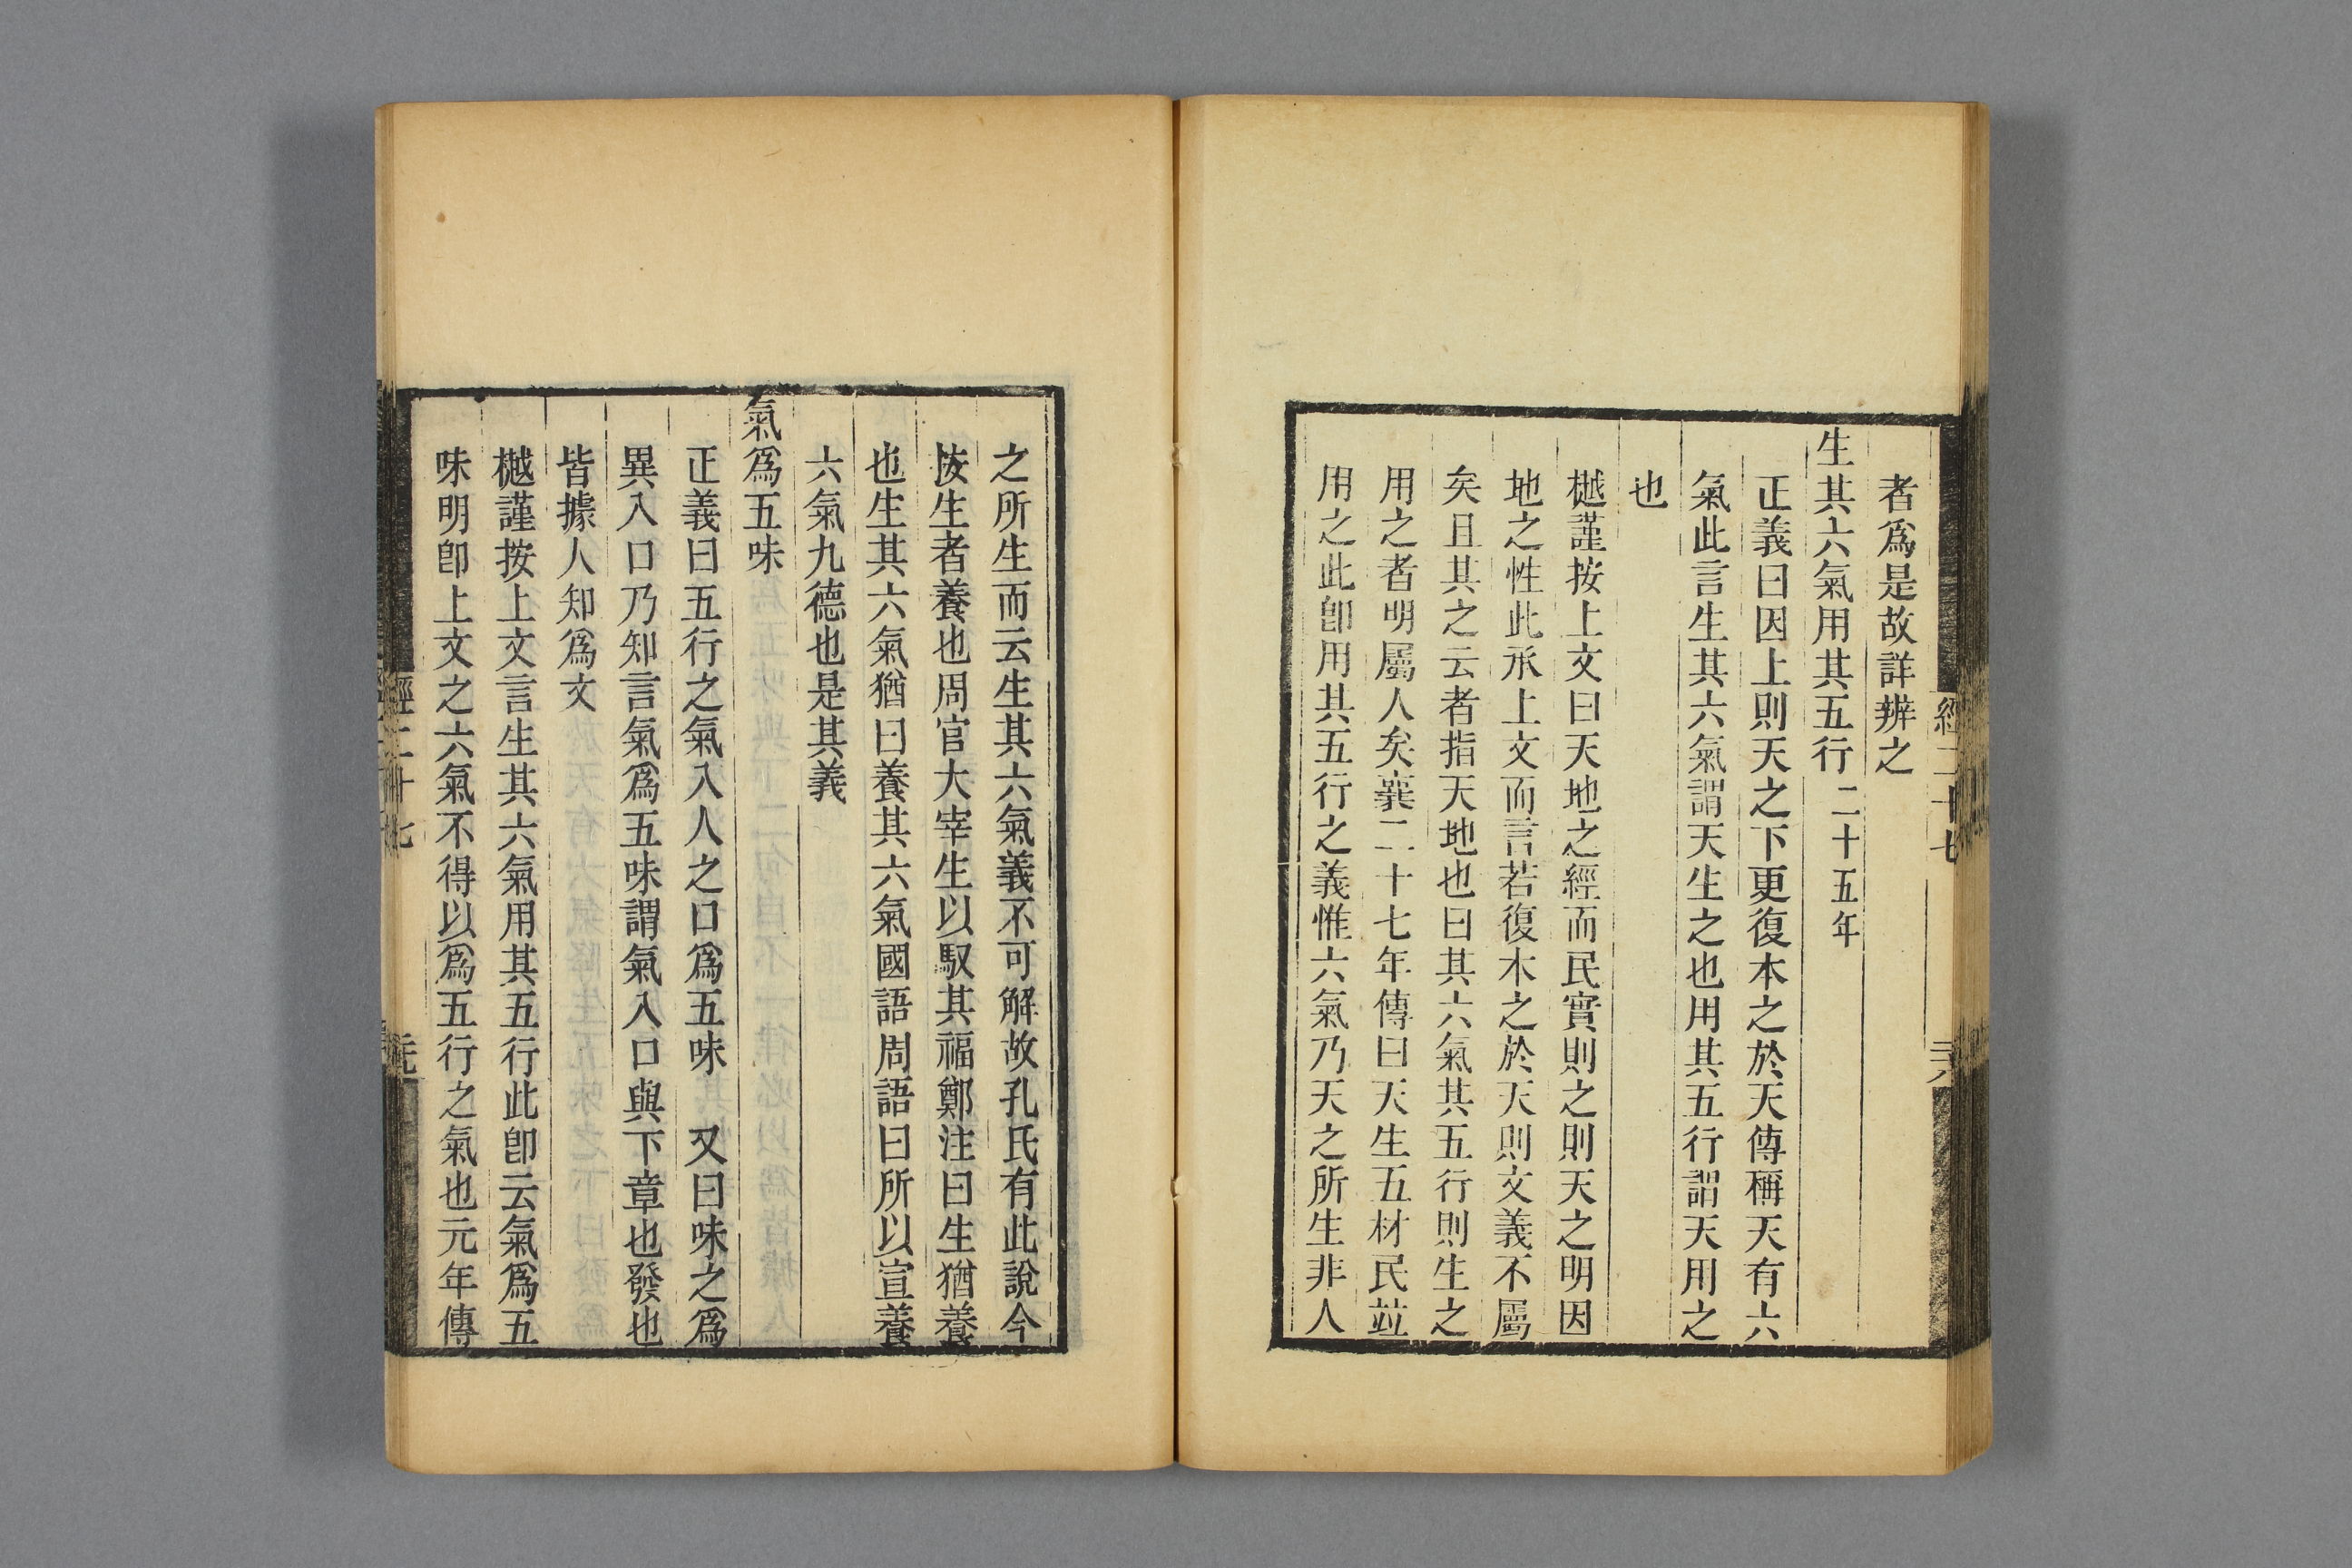 者爲是故詳辨之
生其六氣用其五行 二十五年
正義曰因上則天之下更復本之於天傳稱天有六
氣此言生其六氣謂天生之也用其五行謂天用之
也
樾謹按上文曰天地之經而民實則之則天之明因
地之性此承上文而言若復本之於天則文義不屬
矣且其之云者指天地也曰其六氣其五行則生之
用之者明屬人矣襄二十七年傳曰天生五材民竝
用之此卽用其五行之義惟六氣乃天之所生非人
之所生而云生其六氣義不可解故孔氏有此說今
按生者養也周官大宰生以馭其福鄭注曰生猶養
也生其六氣猶曰養其六氣國語周語曰所以宣養
六氣九德也是其義
氣爲五味
正義曰五行之氣入人之口爲五味 又曰味之爲
異入口乃知言氣爲五味謂氣入口與下章也發也
皆據人知爲文
樾謹按上文言生其六氣用其五行此卽云氣爲五
味明卽上文之六氣不得以爲五行之氣也元年傳
經二十七